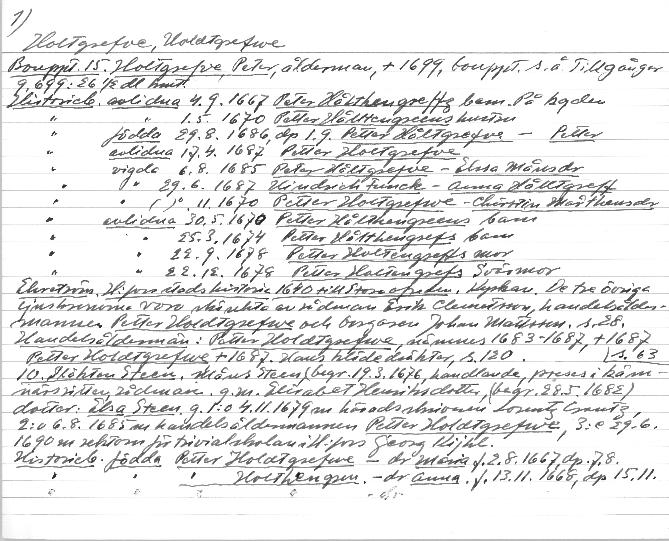 1)
Holtgrefve, Holdtgrefwe
Bouppt. 15. Holtgrefve, Peter, ålderman, + 1699, bouppt. s.å. Tillgångar
9.699:26 1/2 dl kmt.
Historieb. avlidna 4.9.1667 Peter Hålthengreffz barn. På kyrkan
" " 1.5. 1670 Petter Hålthengreens hustru
" födda 29.8. 1686, dp 1.9. Petter Håltgrefve - Petter
" avlidna 17.4. 1687 Petter Holtgrefve
" vigda 6.8. 1685 Peter Håltgrefve - Elssa Månsdr
" " 29.6. 1687 Hindrich Funck - Anna Hålltgreff
" " ( )" 11. 1670 Petter Holtgrefve - Christin Marthensdr
" avlidna 30.5. 1670 Petter Hålthengreens barn
" " 25.3. 1674 Petter Hålthengrefs barn
" " 22.9. 1678 Petter Holtengreffs mor
" " 22.12. 1678 Petter Holtengrefs Svärmor
Ehrström. H:fors stads historia 1640 till Stora ofreden. Kyrkan. De tre övriga
ljuskronorna voro skänkta av rådman Erik Clemetsson, handelsålder-
mannen Petter Holdtgrefwe och borgaren Johan Mattsson. s. 28.
Handelsålderman: Petter Holdtgrefwe, nämnes 1683-1687, +1687 } s. 63
Petter Holdtgrefwe +1687. Hans klädedräkter, s. 120.
10. Släkten Steen. Måns Steen (begr. 19.3.1676, handlande, preses i käm-
närsrätten, rådman. g.m. Elisabet Henriksdotter, (begr. 28.5. 1682)
dotter: Elsa Steen, g. 1:o 4.11.1679 m häradsskrivaren Lorentz Creutz,
2:o 6.8. 1685 m handelsåldermannen Petter Holdtgrefwe, 3:o 29.6.
1690 m rektorn för trivialskolan i H:fors Georg Kijhl.
Historieb. födda Petter Holdtgrefwe - dr Maria f. 2.8.1667, dp. 7.8.
" " " Holthengren. - dr Anna. f. 13.11. 1668, dp 15.11.